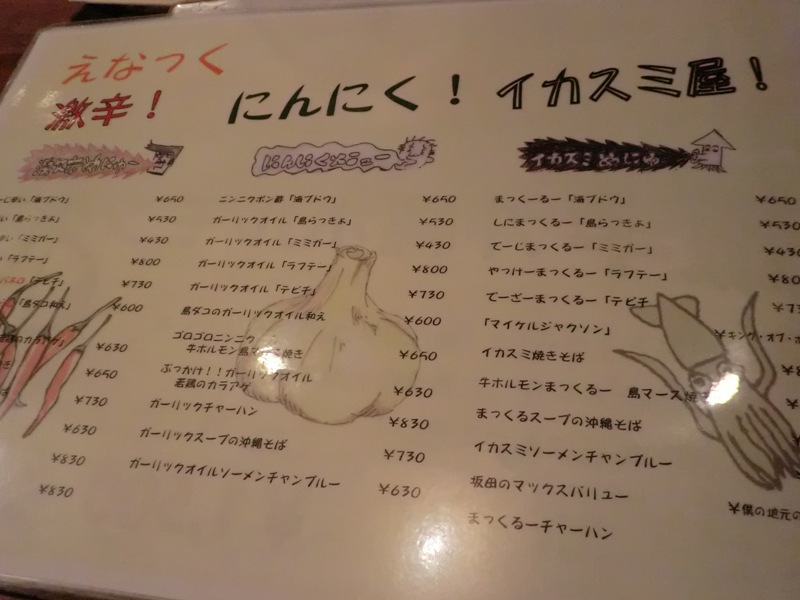 えなつく
激辛！
にんにく！
イカスミ屋！
にんにくメニュー
イカスミめにゅ
「海ブドウ」 ¥650
「島らっきょ」 ¥530
「ミミガー」 ¥430
「ラフテー」 ¥800
「テビチ」 ¥730
「島ダコ和え」 ¥600
¥630
¥650
¥730
¥630
¥830
¥830
ニンニクポン酢「海ブドウ」 ¥650
ガーリックオイル「島らっきょ」 ¥530
ガーリックオイル「ミミガー」 ¥430
ガーリックオイル「ラフテー」 ¥800
ガーリックオイル「テビチ」 ¥730
島ダコのガーリックオイル和え ¥600
ゴロゴロニンニク
牛ホルモン島マース焼き ¥650
ぶっかけ！！ガーリックオイル
若鶏のカラアゲ ¥630
ガーリックチャーハン ¥830
ガーリックスープの沖縄そば ¥730
ガーリックオイルソーメンチャンプルー ¥630
まっくるー「海ブドウ」 ¥650
しにまっくるー「島らっきょ」 ¥530
でーじまっくるー「ミミガー」 ¥430
やっけーまっくるー「ラフテー」
でーざーまっくるー「テビチ
「マイケルジャクソン」 ¥キング・オブ・
イカスミ焼きそば
牛ホルモンまっくるー 島マース焼
まっくるスープの沖縄そば
イカスミソーメンチャンプルー
坂田のマックスバリュー ¥僕の地元の
まっくるーチャーハン